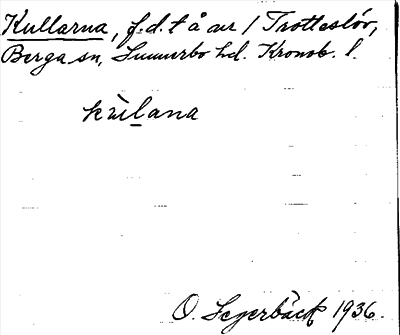 Kullarna, f.d. t å av 1 Trotteslöv,
Berga sn, Sunnerbo hd. Kronob. l.
kùlana
O. Segerbäck 1936.